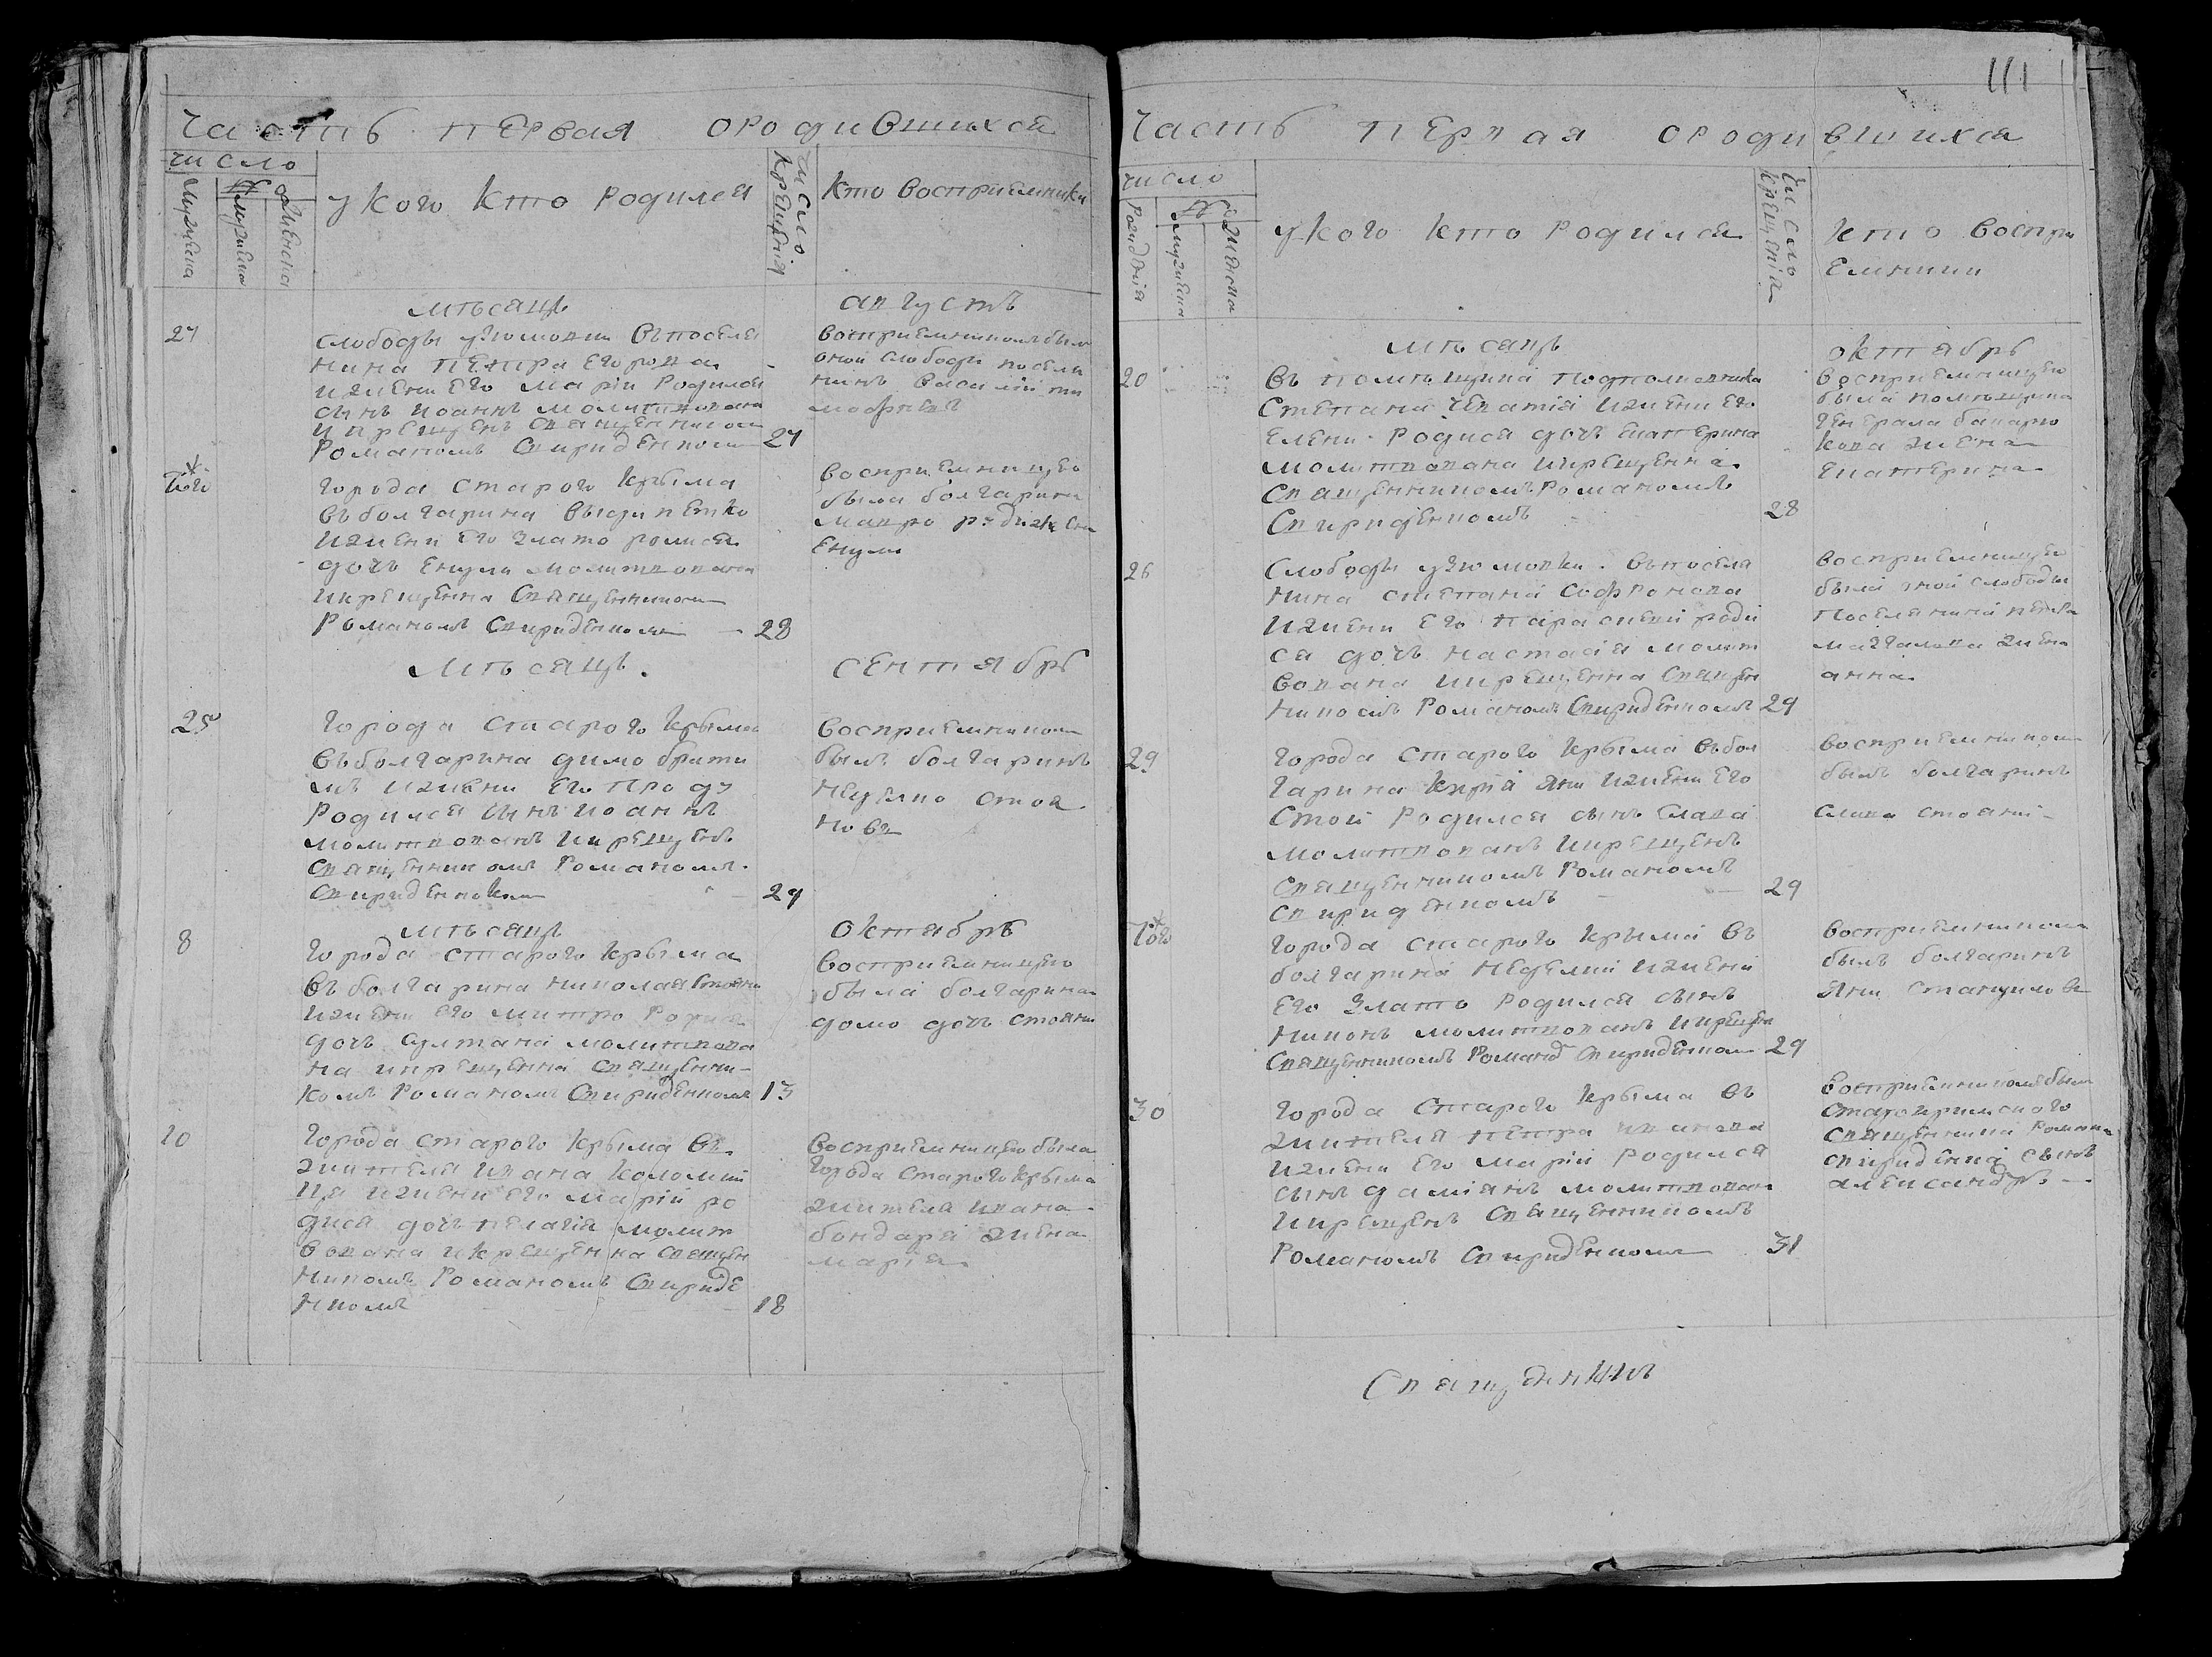 часть первая ородившихся
число
№
мужеска
женска
у кого кто родился
число крещенія
кто восприемники
мѣсяцъ
августъ
27
слободы узюмовки въ поселя
нина петра егорова
ижени его маріи родился
сынъ иоаннъ молитвованъ
икрещенъ священникомъ
романомъ свириденкомъ 27
восприемникомъ былъ
оной слободы поселя
нинъ василій ти
мофѣевъ
того
города старого крыма
въ болгарина
ижени его злато родися
дочь енула молитвована
икрещенна священникомъ
романомъ свириденкомъ 28
восприемницею
была болгарина
енула
мѣсяцъ
сентябрь
25
города старого крыма
въ болгарина димо брати
ижени его
родился сынъ иоаннъ
молитвованъ икрещенъ
священникомъ романомъ
свириденкомъ 29
восприемникомъ
былъ болгаринъ
неделко стоя
новъ
мѣсяцъ
октябрь
8
города старого крыма
въ болгарина николая стояни
ижени его митро родися
дочь султана молитвова
на икрещенна священни
комъ романомъ свириденкомъ 13
восприемницею
была болгарина
домо дочь стояни
10
города старого крыма въ
жителя ивана коломий
ця ижени его маріи ро
дися дочь пелагія молит
вована икрещенна священ
никомъ романомъ свириде
нкомъ 18
восприемницею была
города старого крыма
жителя ивана
бондаря жена
марія
111
часть первая ородившихся
число
рождѣнія
№
мужеска
женска
у кого кто родился
число крещенія
кто воспри
емники
мѣсяцъ
октябрь
20
въ помѣщика подполковника
степана ижени его
елени родися дочь екатерина
молитвована икрещенна
священникомъ романомъ
свириденкомъ 28
восприемницею
была помѣщика
генерала
кова жена
екатерина
26
слободы узюмовки въ поселя
нина степана софронова
ижени его параскеви роди
ся дочь настасія молит
вована икрещенна священ
никомъ романомъ свириденкомъ 29
восприемницею
была оной слободы
поселянина
жена
анна
29
города старого крыма въ бол
гарина ижени его
стои родился сынъ слава
молитвованъ икрещенъ
священникомъ романомъ
свириденкомъ 29
восприемникомъ
былъ болгаринъ
слави стояни
того
города старого крыма въ
болгарина неделки ижени
его злато родился сынъ
никонъ молитвованъ икрещен
священникомъ романо свириденком 29
восприемникомъ
былъ болгаринъ
яни
30
города старого крыма въ
жителя петра иванова
ижени его маріи родился
сынъ даміянъ молитвован
икрещенъ священникомъ
романомъ свириденкомъ 31
восприемникомъ былъ
старокримского
священника романа
свириденка сынъ
александръ
священникъ